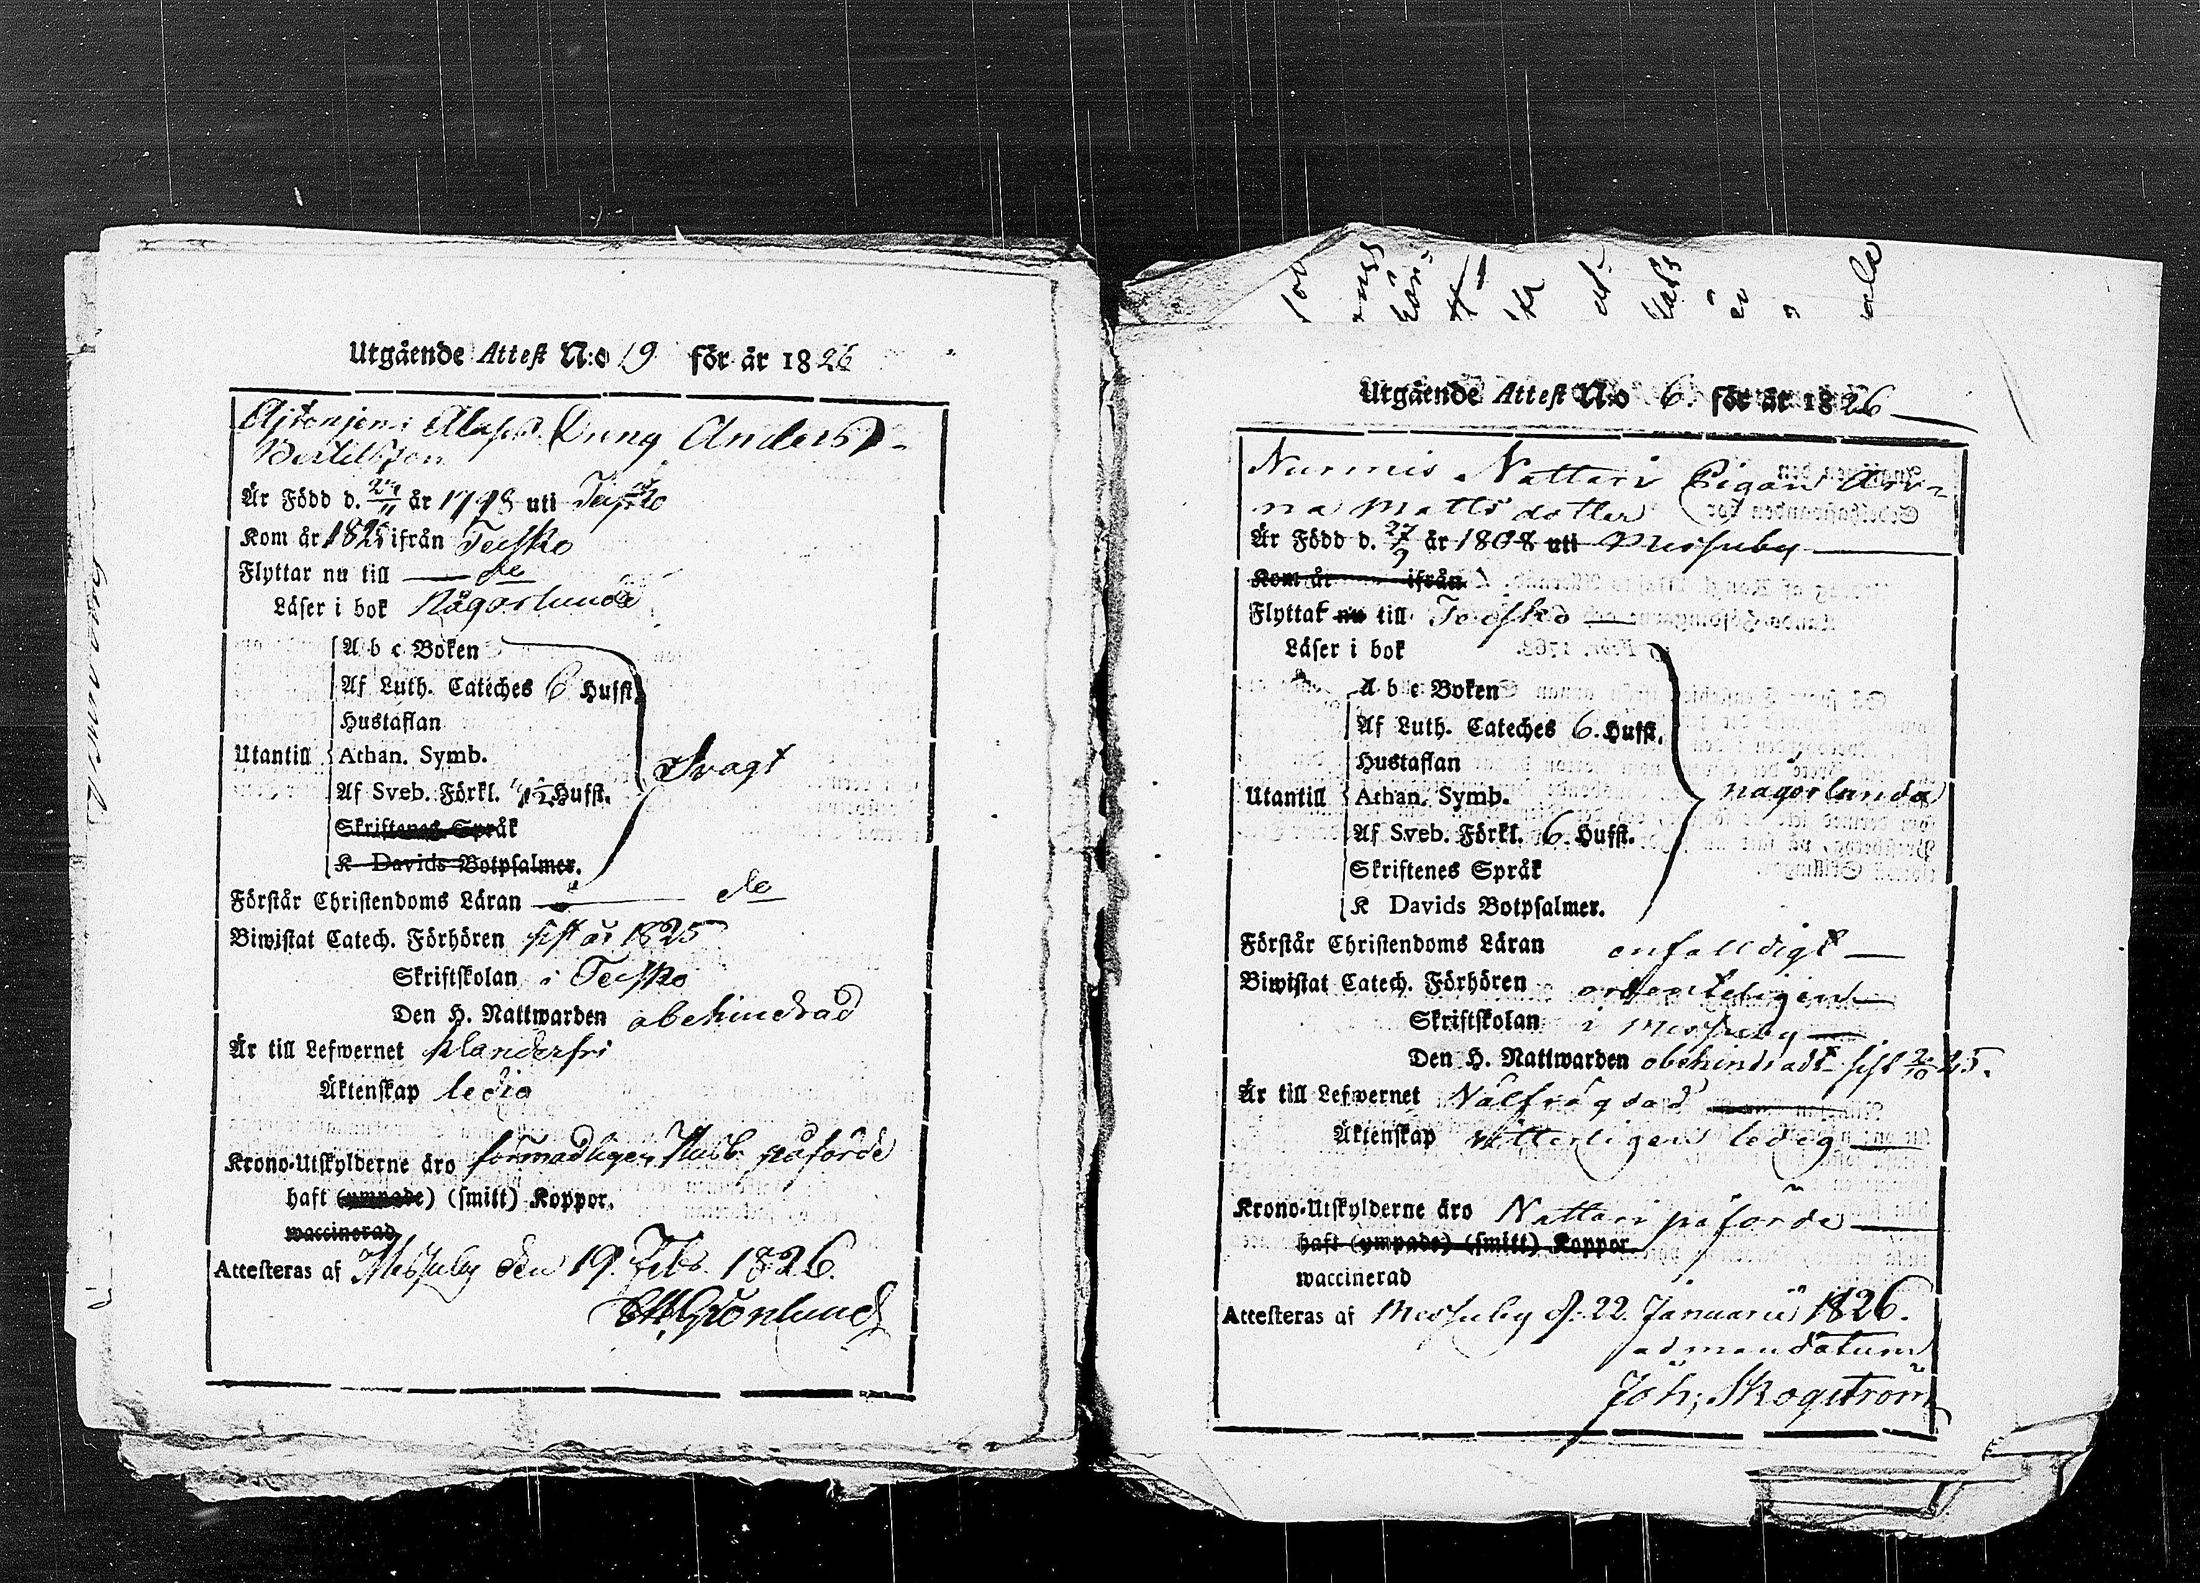 Utgående Attest N:o 19 för år 1826
Alapst. Dräng Anders
Bertilsson
Är Född d. 29/11 år 1798 uti Teisko
Kom år 1825 ifrån Teisko
Flyttar nu till — do
Läser i bok Någorlunda
A b c Boken
Af Luth. Cateches 6 Hufst.
Hustaflan
Utantill Athan. Symb. Svagt
Af Sveb. Förkl. 1½ Hufst.
Skriftenes Språk
K Davids Botpsalmer.
Förstår Christendoms Läran — do
Biwistat Catech. Förhören sist år 1825
Skriftskolan i Teisko
Den H. Nattwarden obehindrad
Är till Lefwernet klanderfri
Äktenskap ledig
Krono-Utskylderne äro påförde
haft (ympade) (smitt) Koppor.
waccinerad
Attesteras af Messuby den 19 Febr. 1826.
Grönlund
Utgående Attest N:o 6. för år 1826
Nurmis Nattari Pigan An-
na Matts dotter
Är Född d. 27/9 år 1808 uti Messuby
Kom år ifrån
Flyttat nu till Teisko
Läser i bok
A b c Boken
Af Luth. Cateches 6. Hufst.
Hustaflan
Utantill Athan. Symb. någorlunda
Af Sveb. Förkl. 6. Hufst.
Skriftenes Språk
K Davids Botpsalmer.
Förstår Christendoms Läran enfalldigt
Biwistat Catech. Förhören ordenteligen
Skriftskolan i Messuby
Den H. Nattwarden obehindradt sist 2/10 25.
Är till Lefwernet Wälfrägdad
Äktenskap witterligen ledig
Krono-Utskylderne äro Nattari påförde
haft (ympade) (smitt) Koppor.
waccinerad
Attesteras af Messuby d. 22 Januarii 1826.
ad mandatum
Joh; Skogström